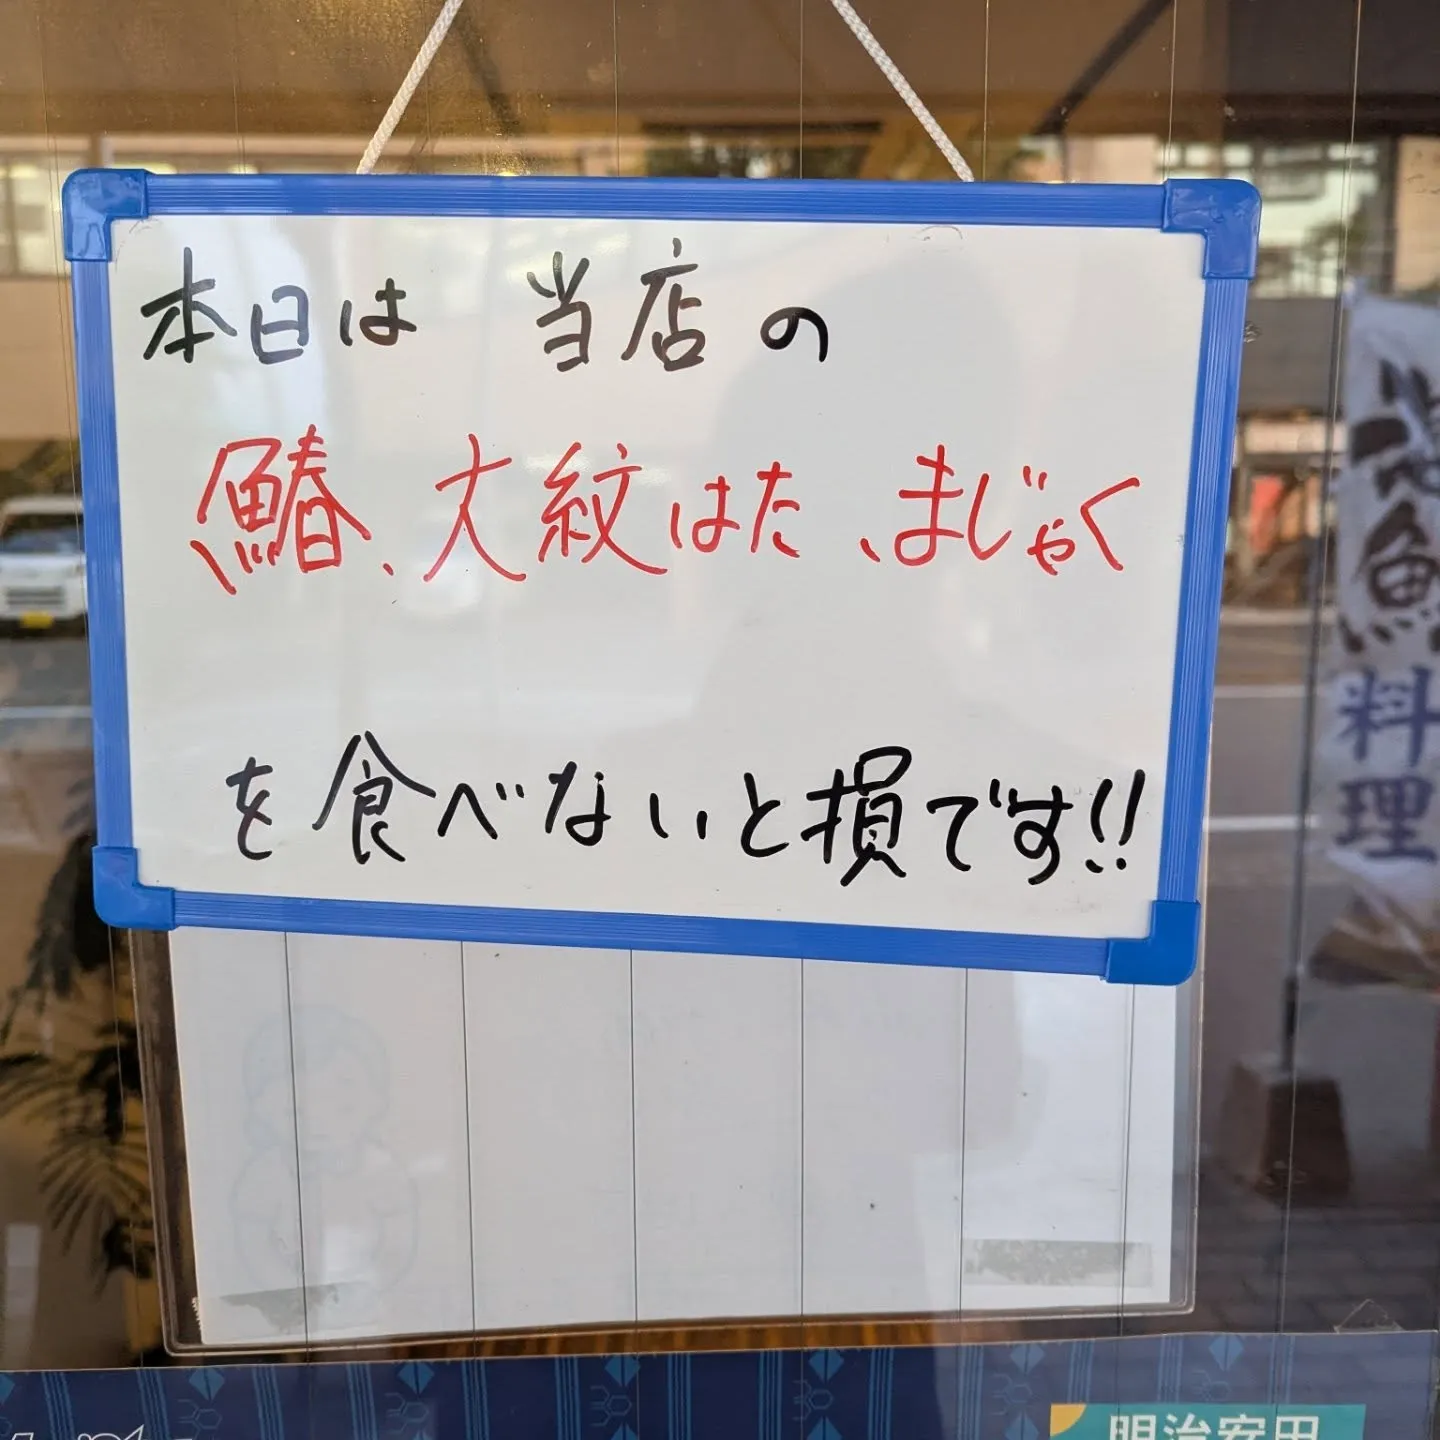 本日は 当店の
鰆、大紋はた、まじゃく
を食べないと損です!!
魚
料理
明治安田